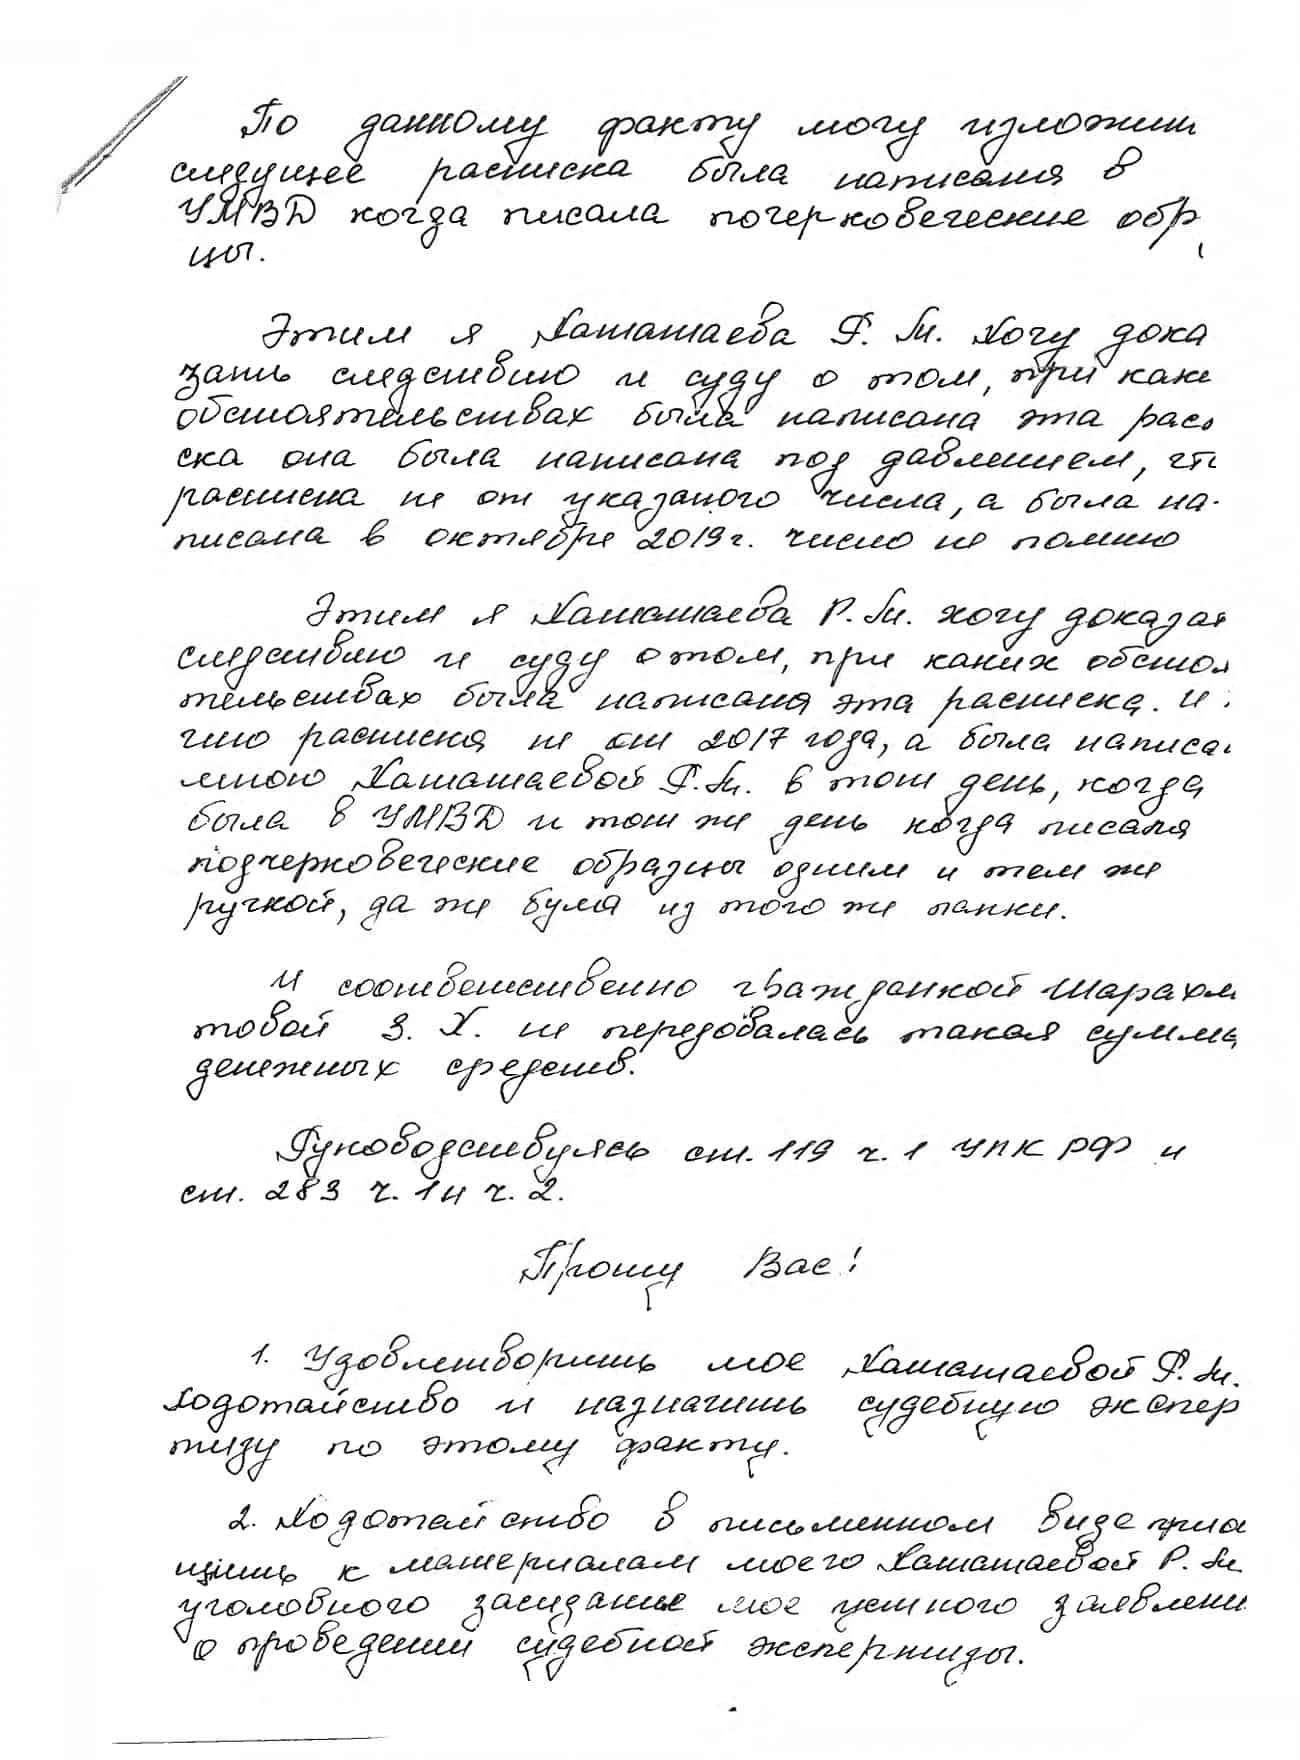 По данному факту могу изложит
следущее расписка была написана в
УМВД когда писала почерковеческие обр
цы.
Этим я Хаташаева Р. М. хочу дока
зать следствию и суду о том, при каки
обстоятельствах была написана эта расп
ска она была написана под давлением, чт
расписка не от указаного числа, а была на-
писана в октябре 2019 г. число не помню
Этим я Хаташаева Р. М. хочу доказат
следствию и суду о том, при каких обстоя
тельствах была написана эта расписка. И
что расписка не от 2017 года, а была написа
мною Хаташаевой Р. М. в тот день, когда
была в УМВД и тот же день когда писала
подчерковеческие образцы одним и тем же
ручкой, да же была из того же папки.
И соответственно гражданкой Шарахм
товой З. Х. не передовалась такая сумма
денежных средств.
Руководствуясь ст. 119 ч. 1 УПК РФ и
ст. 283 ч. 1 и ч. 2.
Прошу Вас!
1. Удовлетворить мое Хаташаевой Р. М.
ходотайство и назначить судебную экспер
тизу по этому факту.
2. Ходотайство в письменном виде приа
щить к материалам моего Хаташаевой Р. М
уголовного заседание мое устного заявлени
о проведении судебной экспертизы.